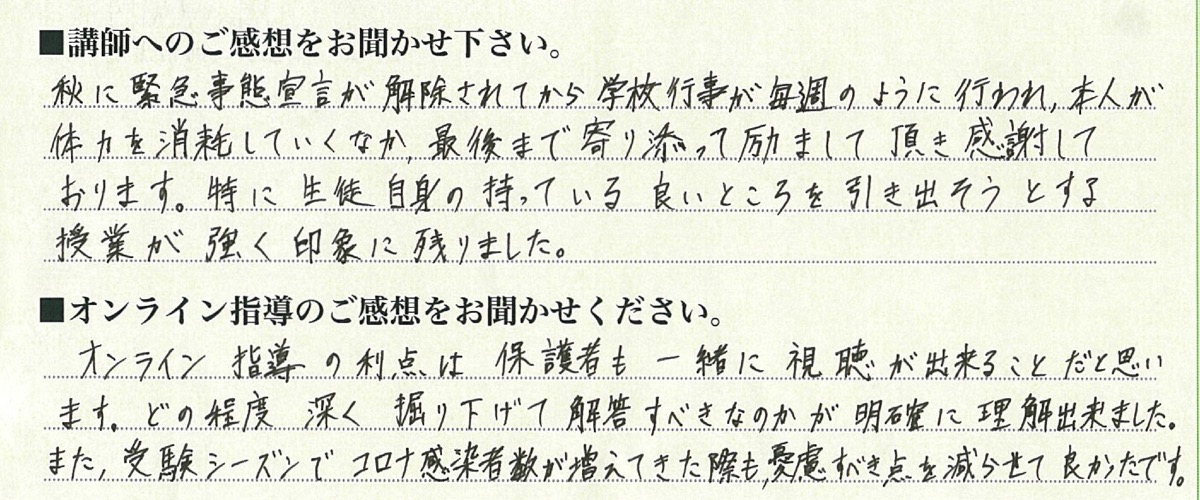 ■講師へのご感想をお聞かせ下さい。
秋に緊急事態宣言が解除されてから学校行事が毎週のように行われ,本人が
体力を消耗していくなか,最後まで寄り添って励まして頂き感謝して
おります。特に生徒自身の持っている良いところを引き出そうとする
授業が強く印象に残りました。
■オンライン指導のご感想をお聞かせください。
オンライン指導の利点は保護者も一緒に視聴が出来ることだと思い
ます。どの程度深く掘り下げて解答すべきなのかが明確に理解出来ました。
また,受験シーズンでコロナ感染者数が増えてきた際も,憂慮すべき点を減らせて良かったです。